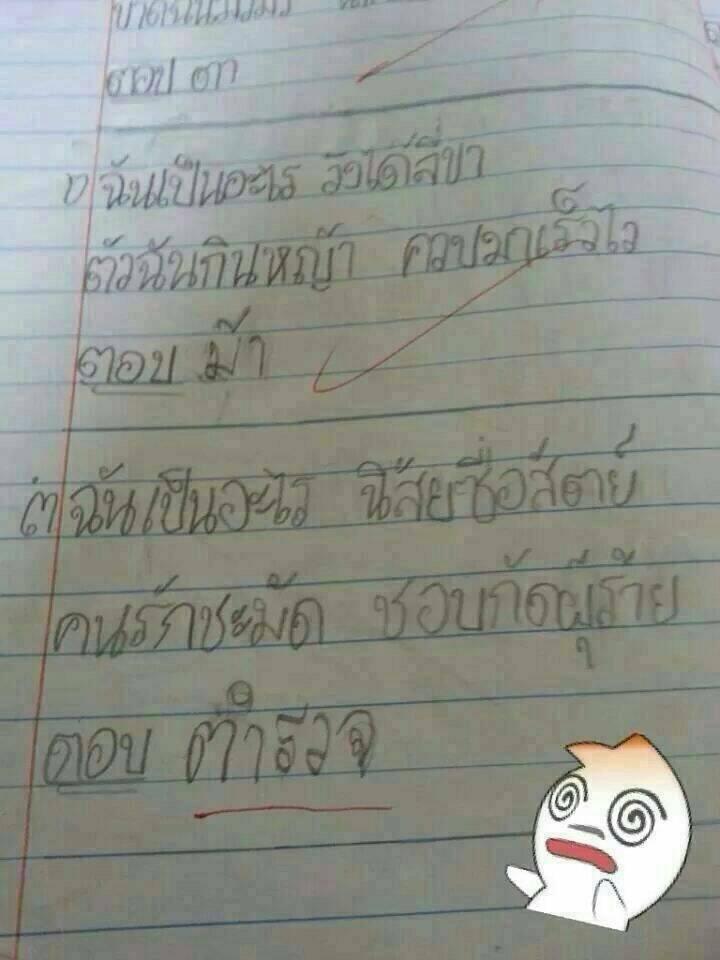 ตอบ ตา
๖ ฉันเป็นอะไร วิ่งได้สี่ขา
ตัวฉันกินหญ้า ควบมาเร็วไว
ตอบ ม้า
๗ ฉันเป็นอะไร นิสัยซื่อสัตย์
คนรักชะมัด ชอบกัดผู้ร้าย
ตอบ ตำรวจ